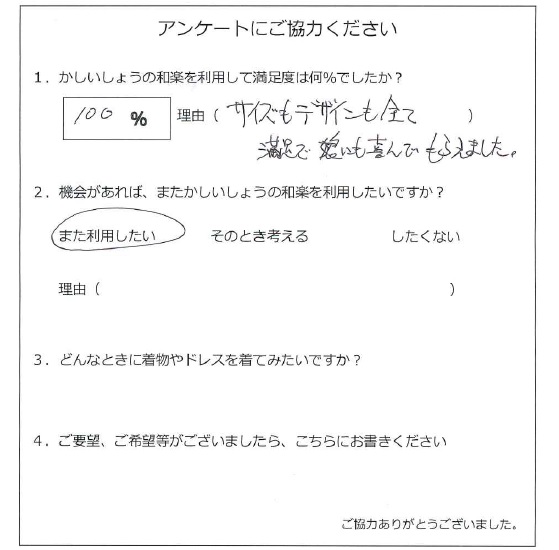 アンケートにご協力ください
1．かしいしょうの和楽を利用して満足度は何％でしたか？
100 ％ 理由（ サイズもデザインも全て ）
満足で 娘も喜んでもらえました。
2．機会があれば、またかしいしょうの和楽を利用したいですか？
また利用したい そのとき考える したくない
理由（ ）
3．どんなときに着物やドレスを着てみたいですか？
4．ご要望、ご希望等がございましたら、こちらにお書きください
ご協力ありがとうございました。